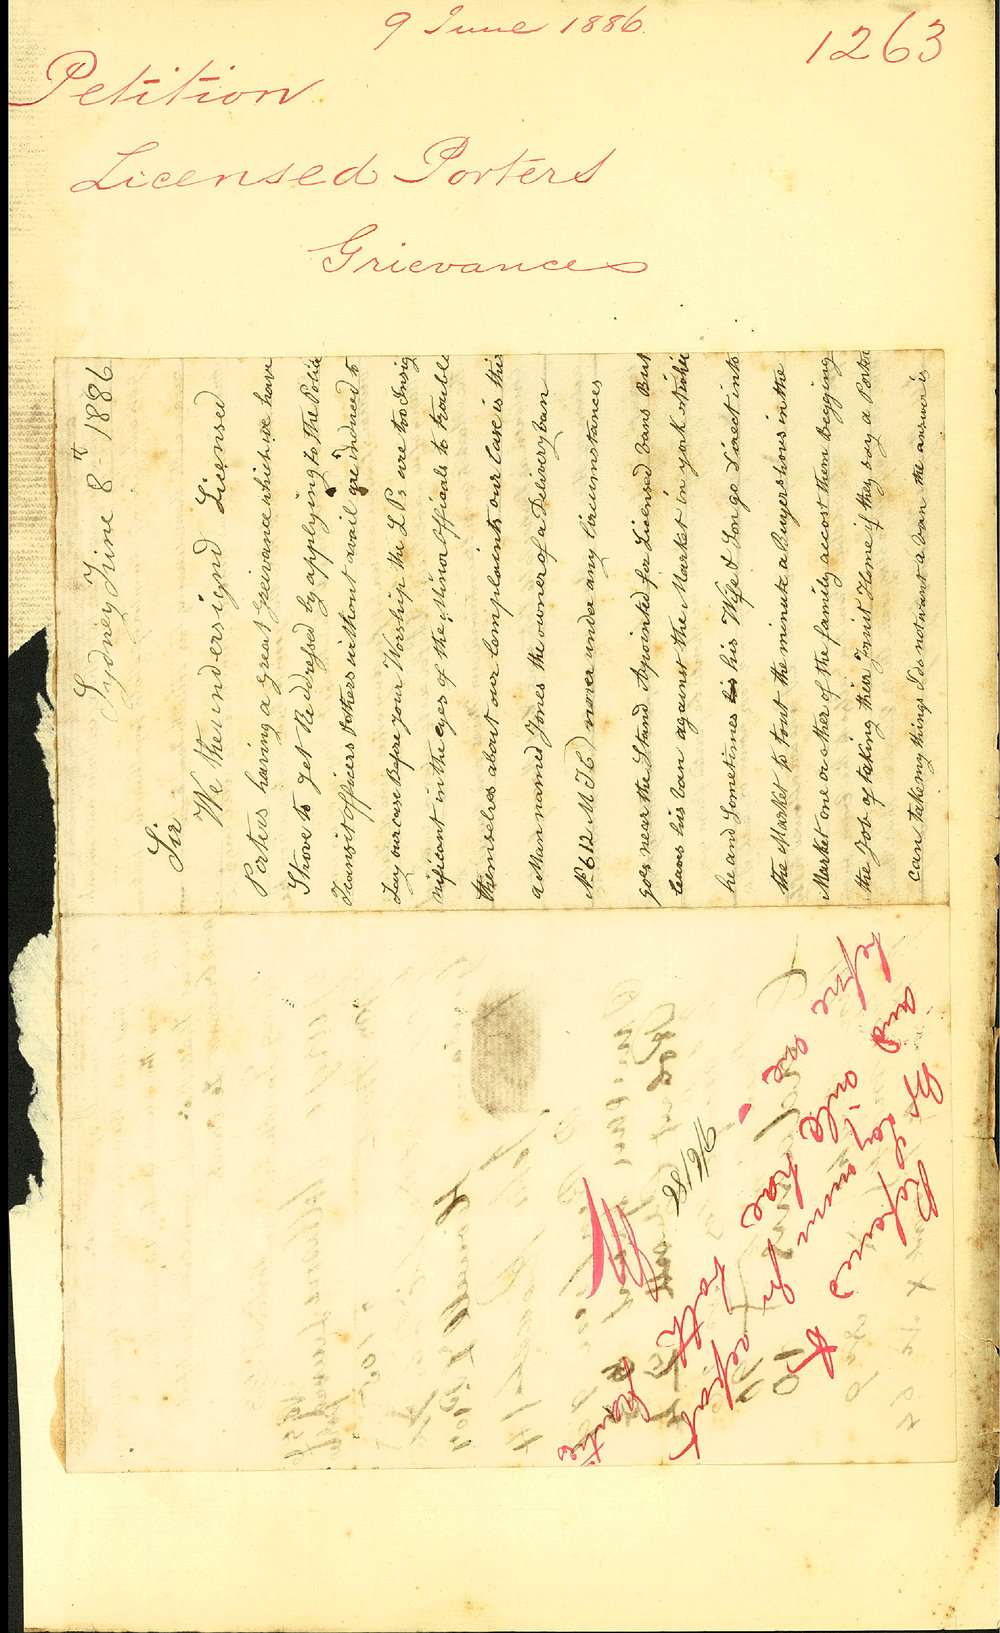 9 June 1886
1263
Petition
Licensed Porters
Grievances
Sydney June 8th 1886
Sir
We the undersignd Licensed
Porters having a great Greivance which we have
Strove to get Reddressed by applying to the Polic
Transit Officers & others without avail are induced to
Lay our case Before your Worship the L Ps are too Insig
nificant in the eyes of the Minor Officials to trouble
themselves about our Complaints our Case is this
a Man named Jones the owner of a Delivery van
No 612 M T C) never under any Circumstances
goes near the Stand Apointed for Licensed vans But
leans his van against the Market in york Street
he and Sometimes his his Wife & Son go Direct into
the Market to tout the minute a Buyer shows in the
Market one or other of the family accost them Begging
the Job of taking their Fruit Home if they say a Porter
can take my things I do not want a van the answer is
Mr Seymour for report
and to have both parties
before me
9/6/86